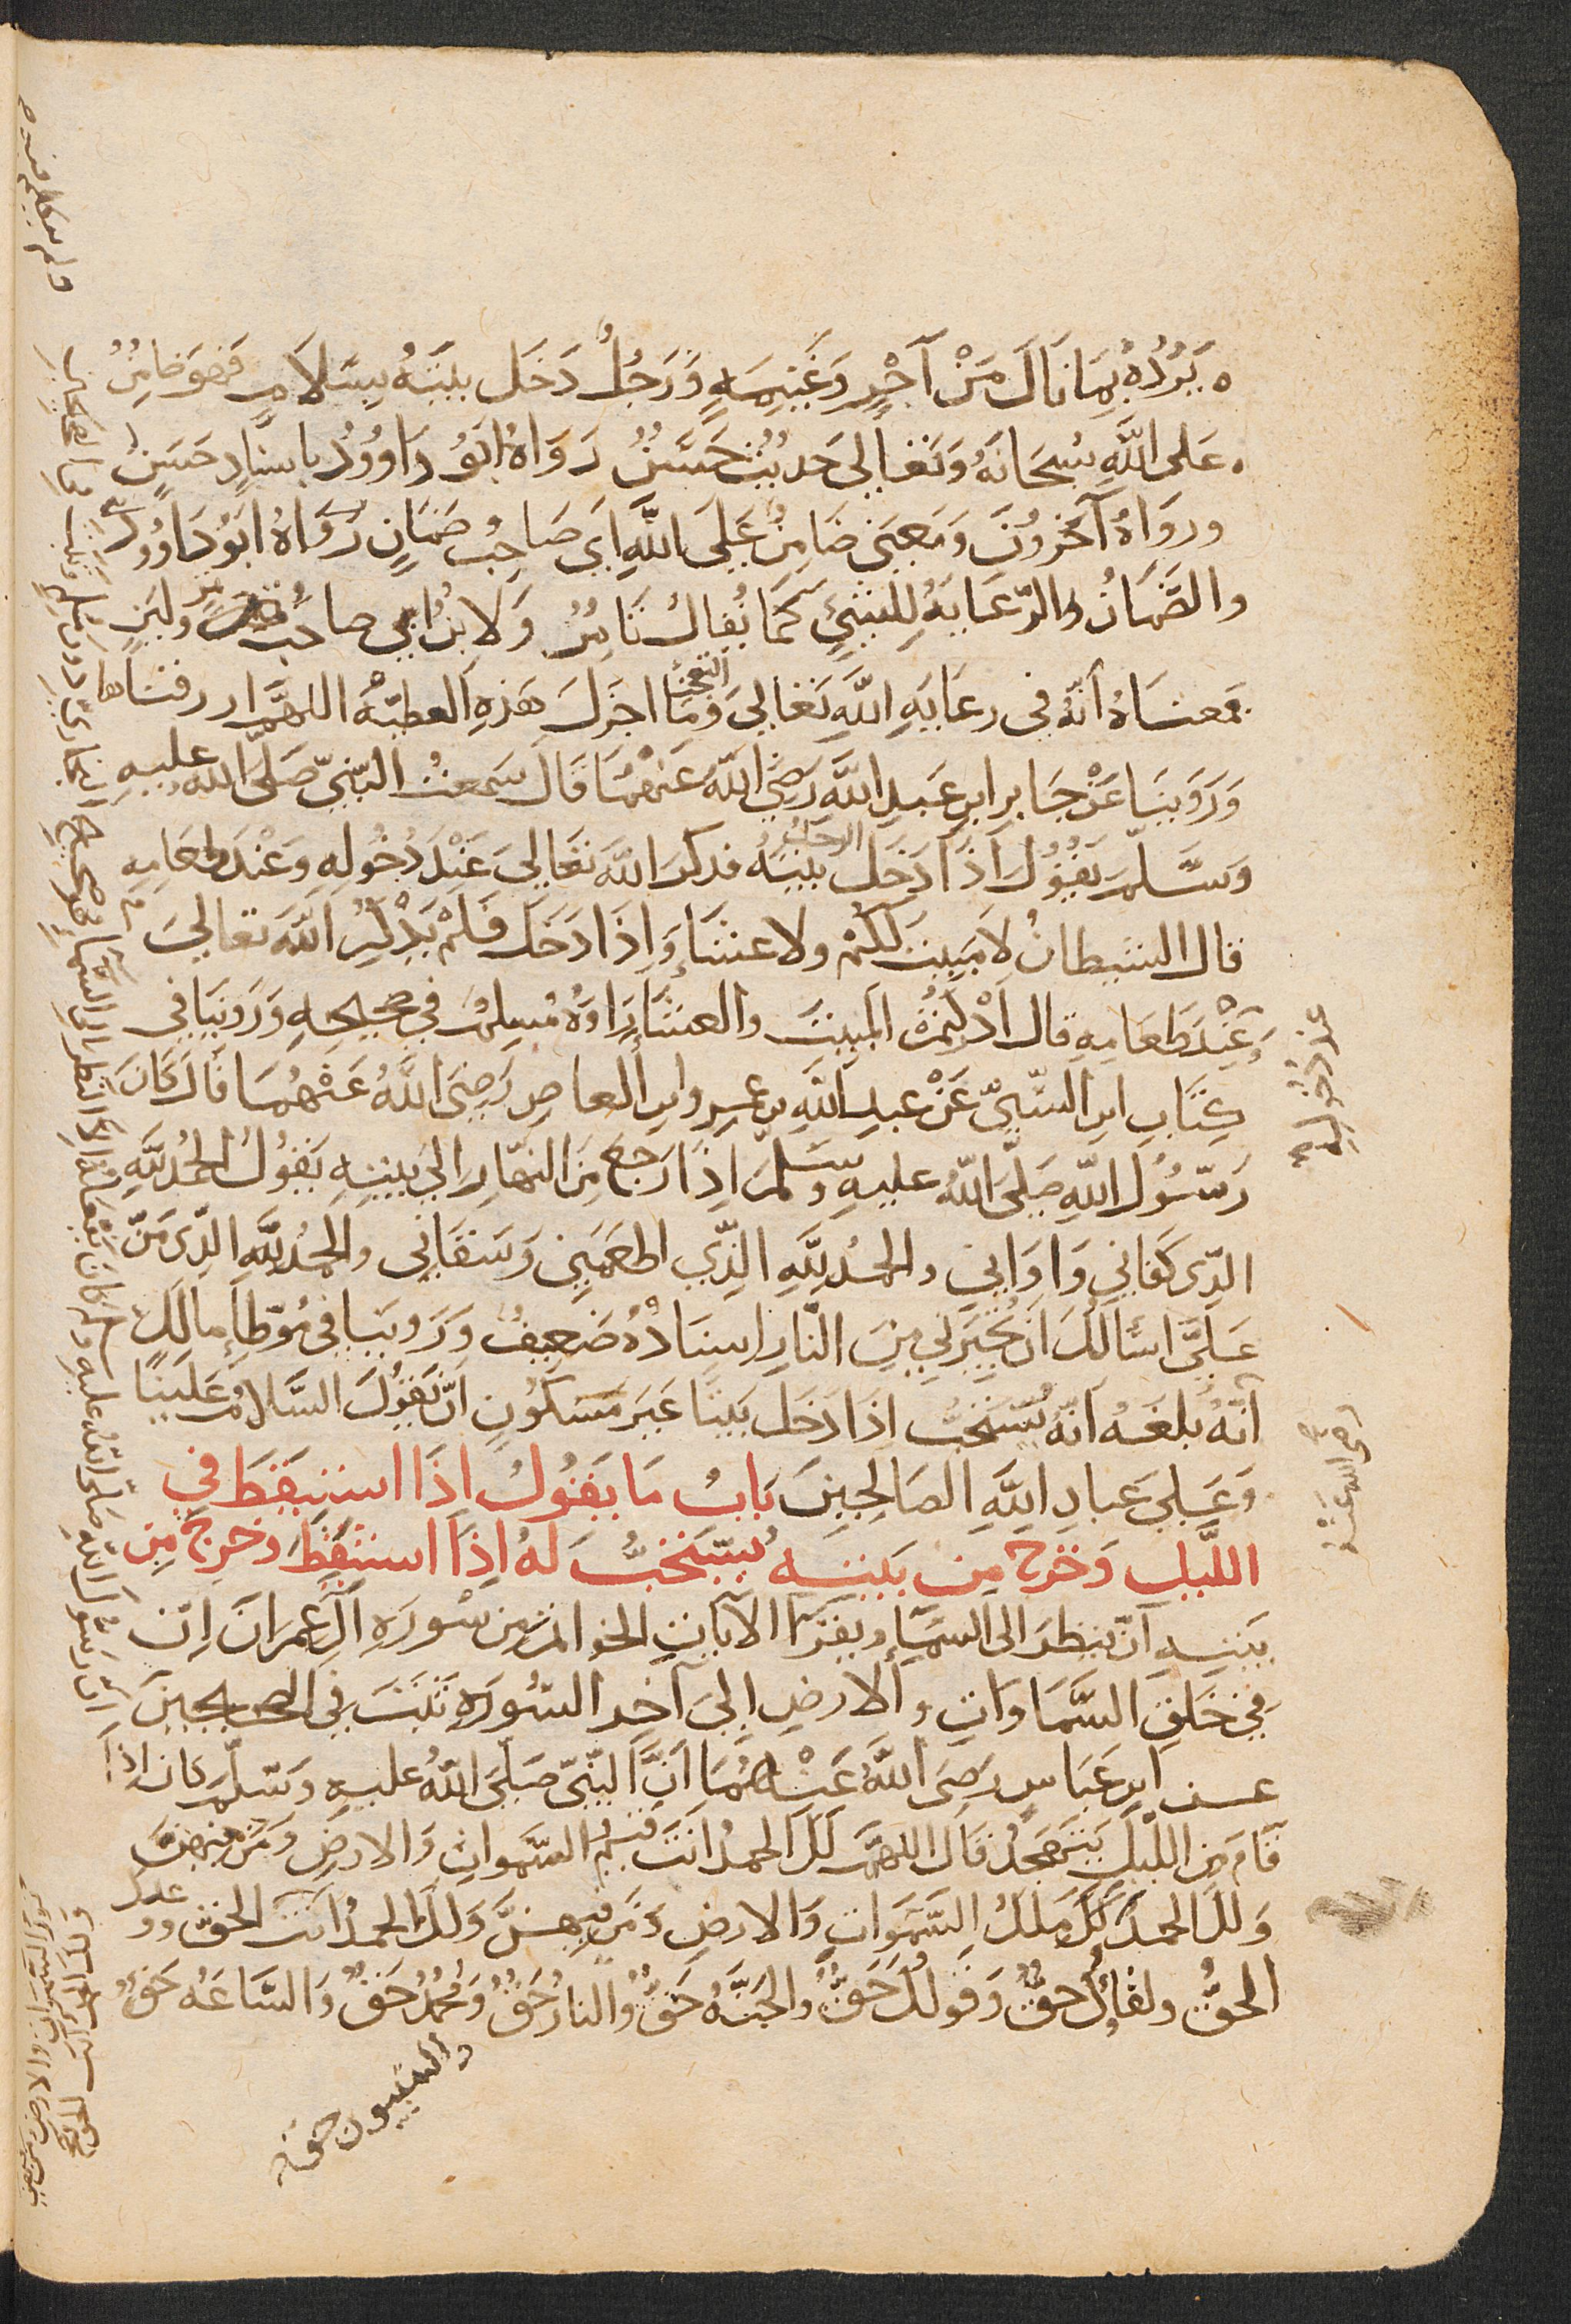 يَرُدُّهُ بِمَا نَالَ مَنْ اَجْرٍ وَغَنِيمَةٍ وَرَجُلٌ دَخَلَ بَيْتَهُ بِسَلَامٍ فَهُوَ ضَامِنٌ
عَلى اللَّهِ سُبْحَانَهُ وَتَعَالى حَدِيثٌ حَسَنٌ رَوَاهُ اَبُو دَاوُودُ بِاِسْنَادٍ حَسَنٍ
وروَاهُ آخَرُونَ وَمَعْنَى ضَامِنٌ عَلَى اللَّهِ اَي صَاحِبُ ضَمَانٍ رَوَاهُ اَبُو دَاوُودَ
والضَّمَانُ والرِّعَايَةُ لِلشَّيْئِ كَمَا يُقالُ تَامِرٌ وَلَابِنٌ اي صاحب تمر ولبَنٍ
فمَعناهُ اَنّهُ فى رعَايَةِ اللَّهِ تَعَالى وَمَا اجزلَ هَذِهِ العطيّة اللهمّ ارزقناها
وَرَوَينَا عَنْ جَابِرِ ابنِ عَبدِ اللَّهِ رَضِيَ اللَّهُ عَنهُمَا قَالَ سَمعتُ النَّبِيّ صَلَّى اللهُ عليهِ
وَسَلَّمَ يَقُولُ اِذَا دَخَلَ الرجلُ بيتهُ فذكرَ اللَّهَ تَعَالىَ عَنْدَ دُخُولِهِ وَعَنْدَ طعامِهِ
قال الشيطانُ لَا مَبِيتَ لَكُمْ ولا عشَاءَ وَاِذَا دَخَلَ فَلَمْ يَذْكُرُ اللَّهَ تَعالىَ
عَنْدَ طَعَامِهِ قال اَدْرَكْتُمْ المبيتَ والعشَاءَ رَاوهُ مُسلمٌ في صَحيحِهِ وَرَوينَا في
كِتَابِ ابنِ السّنّيِّ عَنْ عبدِ اللَّهِ بنِ عَمرِو ابنِ العاصِ رَضِىَ اللَّهُ عَنْهُمَا قَالَ كَانَ
رَسُولُ اللَّهِ صَلَّى اللَّهُ عليهِ وَسَلَّمَ اِذَا رَجَعَ مِنَ النهّارِ الىَ بَيتِهِ يَقُولُ الحمدُ للَّهِ
الذّى كَفَاني وَاوَاني والحمدُ للَّهِ الذّي اطعَمَني وَسَقَاني والحمدُ للَّهِ الذّى مَنَّ
عَلَىَّ اسْالُكَ اَنْ تُجِيرَني مِنَ النَّارِ اِسْنَادُهُ ضَعِيفٌ وَرَوينَا فى مُوَطَّإِ مالكٍ
اَنَّهُ بلغَهُ اَنَّهُ يُسْتَحَبُّ اِذَا دَخَل بَيتًا غَيرَ مَسكُونٍ اَنْ يَقُولَ السَّلامُ عَلَينَا
وَعَلَى عِبادِ اللَّهِ الصَالحِينَ بَابُ مَا يَقُولُ اِذَا اسْتَيقَظَ في
اللَّيلِ وَخرج مِن بَيتِهِ يُسْتَحَبُّ لَهُ اِذَا اسْتَيقَظَ وخرجَ مِن
بيتِهِ اَنْ ينظرَ الى السَّماءِ ويقرَأَ الآياتِ الخواتِمَ من سُورَةِ آلِ عِمرانَ اِنّ
في خَلقِ السَّمَاوَاتِ والارضِ اِلىَ آخرِ السُّورَةِ ثبَتَ في الصّحيحينِ
عن ابنِ عَبَاسٍ رَضىَ اللَّهُ عَنْهُمَا اَنَّ النَّبِيّ صَلَّى اللَّهُ عليهِ وَسَلَّمَ كانَ اِذَا
قَامَ مِنَ اللَّيلِ يَتَهَجَّدُ قَالَ اللهمَّ لَكَ الحمدُ اَنْتَ قَيِّمُ السَّمواتِ وَالارضِ وَمَن فيهِنَّ
وَلكَ الحمدُ لَكَ مُلكُ السَّمَوَاتِ وَالارضِ وَمَن فيهِنَّ وَلَكَ الحمدُ اَنتَ الحَقُّ ووعدكَ
الحقُّ ولقاؤكَ حقٌّ وَقولكَ حَقٌّ والجَنَّةُ حَقٌّ والنارُ حَقٌّ وَمُحَمَّدٌ حَقٌّ وَالسَّاعَةُ حَقٌّ
والنبيون حق
رضي الله عنه